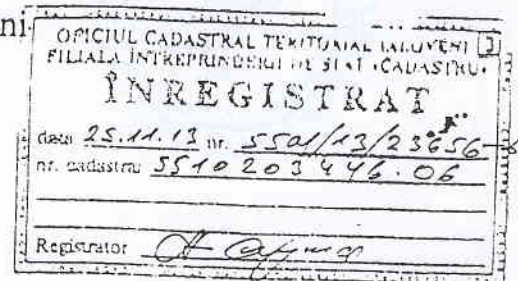 ni
OFICIUL CADASTRAL TERITORIAL IALOVENI 3
FILIALA ÎNTREPRINDERII DE STAT «CADASTRU»
ÎNREGISTRAT
data 25.11.13 nr. 5501/13/23656
nr. cadastral 5510203446.06
Registrator